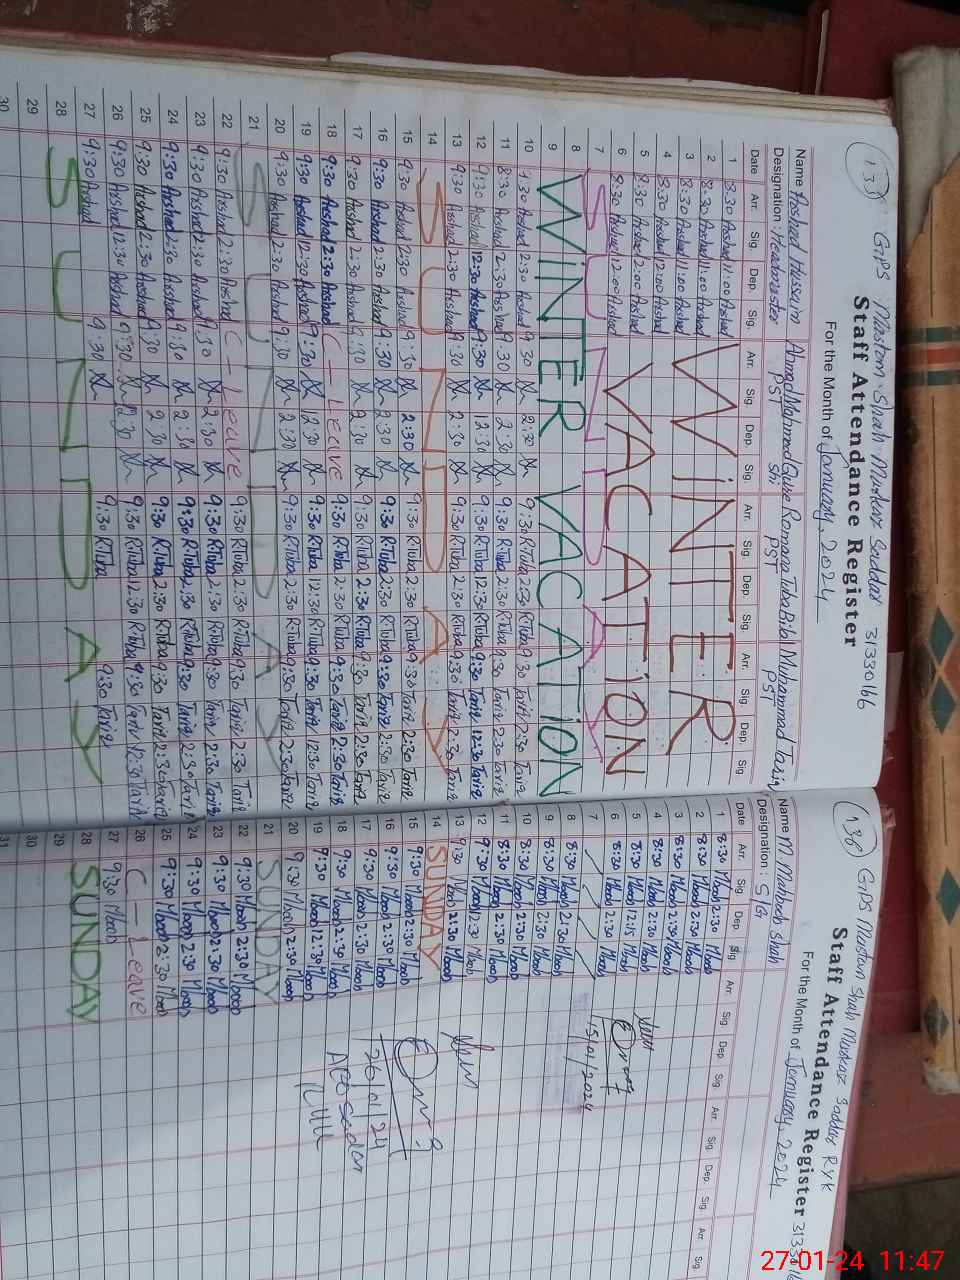 135 GPS Mastoi Shah Markaz Saddar 31330166
Staff Attendance Register
For the Month of January, 2024
Name Arshad Hussain Ahmad Mahmood Qure shi Romana Tuba Bibi Muhammad Tariq
Designation: Headmaster PST PST PST
Date Arr. Sig. Dep. Sig. Arr. Sig. Dep. Sig. Arr. Sig. Dep. Sig. Arr. Sig. Dep. Sig.
1 8:30 Arshad 11:00 Arshad
2 8:30 Arshad 11:00 Arshad
3 8:30 Arshad 11:00 Arshad
4 8:30 Arshad 12:00 Arshad
5 8:30 Arshad 12:00 Arshad
6 8:30 Arshad 12:00 Arshad
WINTER
VACATION
7 SUNDAY
8
9
WINTER VACATION
10 9:30 Arshad 2:30 Arshad 9:30 2:30 9:30 R.Tuba 2:30 R.Tuba 9:30 Tariq 2:30 Tariq
11 8:30 Arshad 2:30 Arshad 9:30 2:30 9:30 R.Tuba 2:30 R.Tuba 9:30 Tariq 2:30 Tariq
12 9:30 Arshad 12:30 Arshad 9:30 12:30 9:30 R.Tuba 12:30 R.Tuba 9:30 Tariq 12:30 Tariq
13 9:30 Arshad 2:30 Arshad 9:30 2:30 9:30 R.Tuba 2:30 R.Tuba 9:30 Tariq 2:30 Tariq
14 SUNDAY
15 9:30 Arshad 2:30 Arshad 9:30 2:30 9:30 R.Tuba 2:30 R.Tuba 9:30 Tariq 2:30 Tariq
16 9:30 Arshad 2:30 Arshad 9:30 2:30 9:30 R.Tuba 2:30 R.Tuba 9:30 Tariq 2:30 Tariq
17 9:30 Arshad 2:30 Arshad 9:30 2:30 9:30 R.Tuba 2:30 R.Tuba 9:30 Tariq 2:30 Tariq
18 9:30 Arshad 2:30 Arshad C - Leave 9:30 R.Tuba 2:30 R.Tuba 9:30 Tariq 2:30 Tariq
19 9:30 Arshad 12:30 Arshad 9:30 12:30 9:30 R.Tuba 12:30 R.Tuba 9:30 Tariq 12:30 Tariq
20 9:30 Arshad 2:30 Arshad 9:30 2:30 9:30 R.Tuba 2:30 R.Tuba 9:30 Tariq 2:30 Tariq
21 SUNDAY
22 9:30 Arshad 2:30 Arshad C - Leave 9:30 R.Tuba 2:30 R.Tuba 9:30 Tariq 2:30 Tariq
23 9:30 Arshad 2:30 Arshad 9:30 2:30 9:30 R.Tuba 2:30 R.Tuba 9:30 Tariq 2:30 Tariq
24 9:30 Arshad 2:30 Arshad 9:30 2:30 9:30 R.Tuba 2:30 R.Tuba 9:30 Tariq 2:30 Tariq
25 9:30 Arshad 2:30 Arshad 9:30 2:30 9:30 R.Tuba 2:30 R.Tuba 9:30 Tariq 2:30 Tariq
26 9:30 Arshad 12:30 Arshad 9:30 12:30 9:30 R.Tuba 12:30 R.Tuba 9:30 Tariq 12:30 Tariq
27 9:30 Arshad 9:30 9:30 R.Tuba 9:30 Tariq
28 SUNDAY
29
30
136 GPS Mastoi Shah Markaz Saddar RYK
Staff Attendance Register 313301
For the Month of January, 2024
Name M. Mahboob Shah
Designation: S/G
Date Arr. Sig. Dep. Sig. Arr. Sig. Dep. Sig. Arr. Sig. Dep. Sig. Arr. Sig.
1 8:30 Mboob 2:30 Mboob
2 8:30 Mboob 2:30 Mboob
3 8:30 Mboob 2:30 Mboob
4 8:30 Mboob 2:30 Mboob
5 8:30 Mboob 12:15 Mboob
6 8:30 Mboob 2:30 Mboob
7
15/01/2024
8 8:30 Mboob 2:30 Mboob
9 8:30 Mboob 2:30 Mboob
10 8:30 Mboob 2:30 Mboob
11 8:30 Mboob 2:30 Mboob
12 9:30 Mboob 12:30 Mboob
13 9:30 Mboob 2:30 Mboob
14 SUNDAY
15 9:30 Mboob 2:30 Mboob
16 9:30 Mboob 2:30 Mboob
26/01/24
17 9:30 Mboob 2:30 Mboob
18 9:30 Mboob 2:30 Mboob
AEO Sadar
19 9:30 Mboob 12:30 Mboob
20 9:30 Mboob 2:30 Mboob
21 SUNDAY
22 9:30 Mboob 2:30 Mboob
23 9:30 Mboob 2:30 Mboob
24 9:30 Mboob 2:30 Mboob
25 9:30 Mboob 2:30 Mboob
26 C - Leave
27 9:30 Mboob
28 SUNDAY
29
30
31
27-01-24 11:47